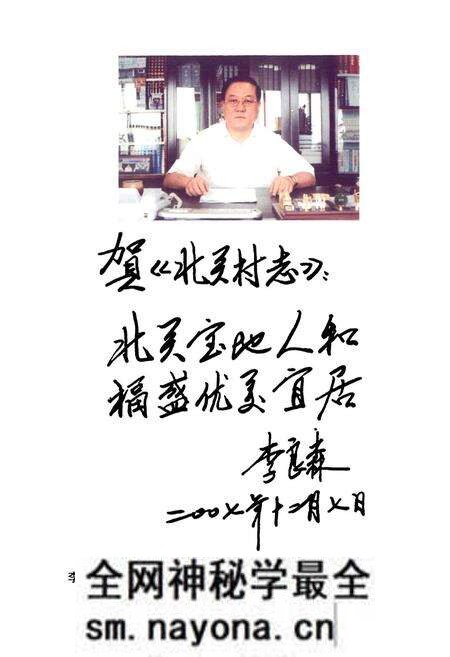 贺《北关村志》：
北关宝地人和
福盛优美宜居
李良森
二00七年十二月七日
李
全网神秘学最全
sm.nayona.cn